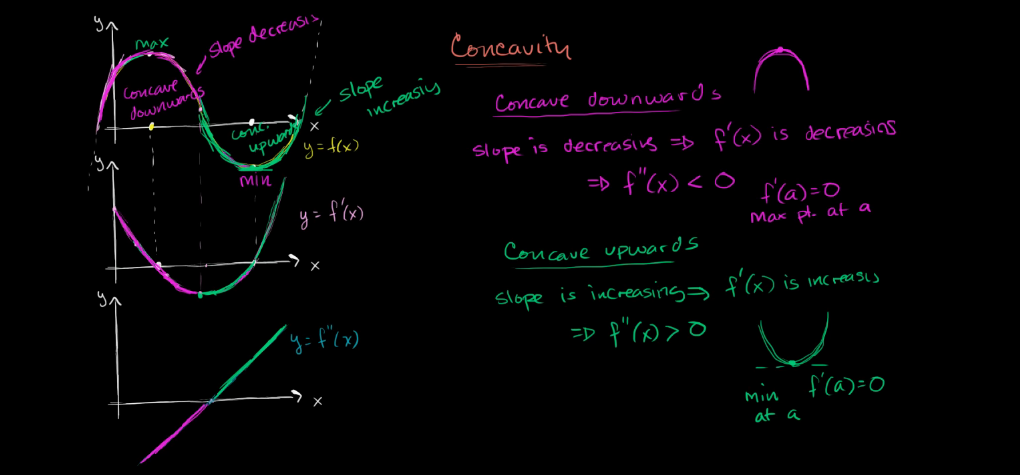 y
max
slope decreasis
concave
downwards
slope
increasis
conc.
upwards
x
y=f(x)
min
y
y=f'(x)
x
y
y=f''(x)
x
Concavity
Concave downwards
slope is decreasins ⇒ f'(x) is decreasins
⇒ f''(x) < 0
f'(a)=0
max pt. at a
Concave upwards
slope is increasing ⇒ f'(x) is increasis
⇒ f''(x) > 0
min f'(a)=0
at a